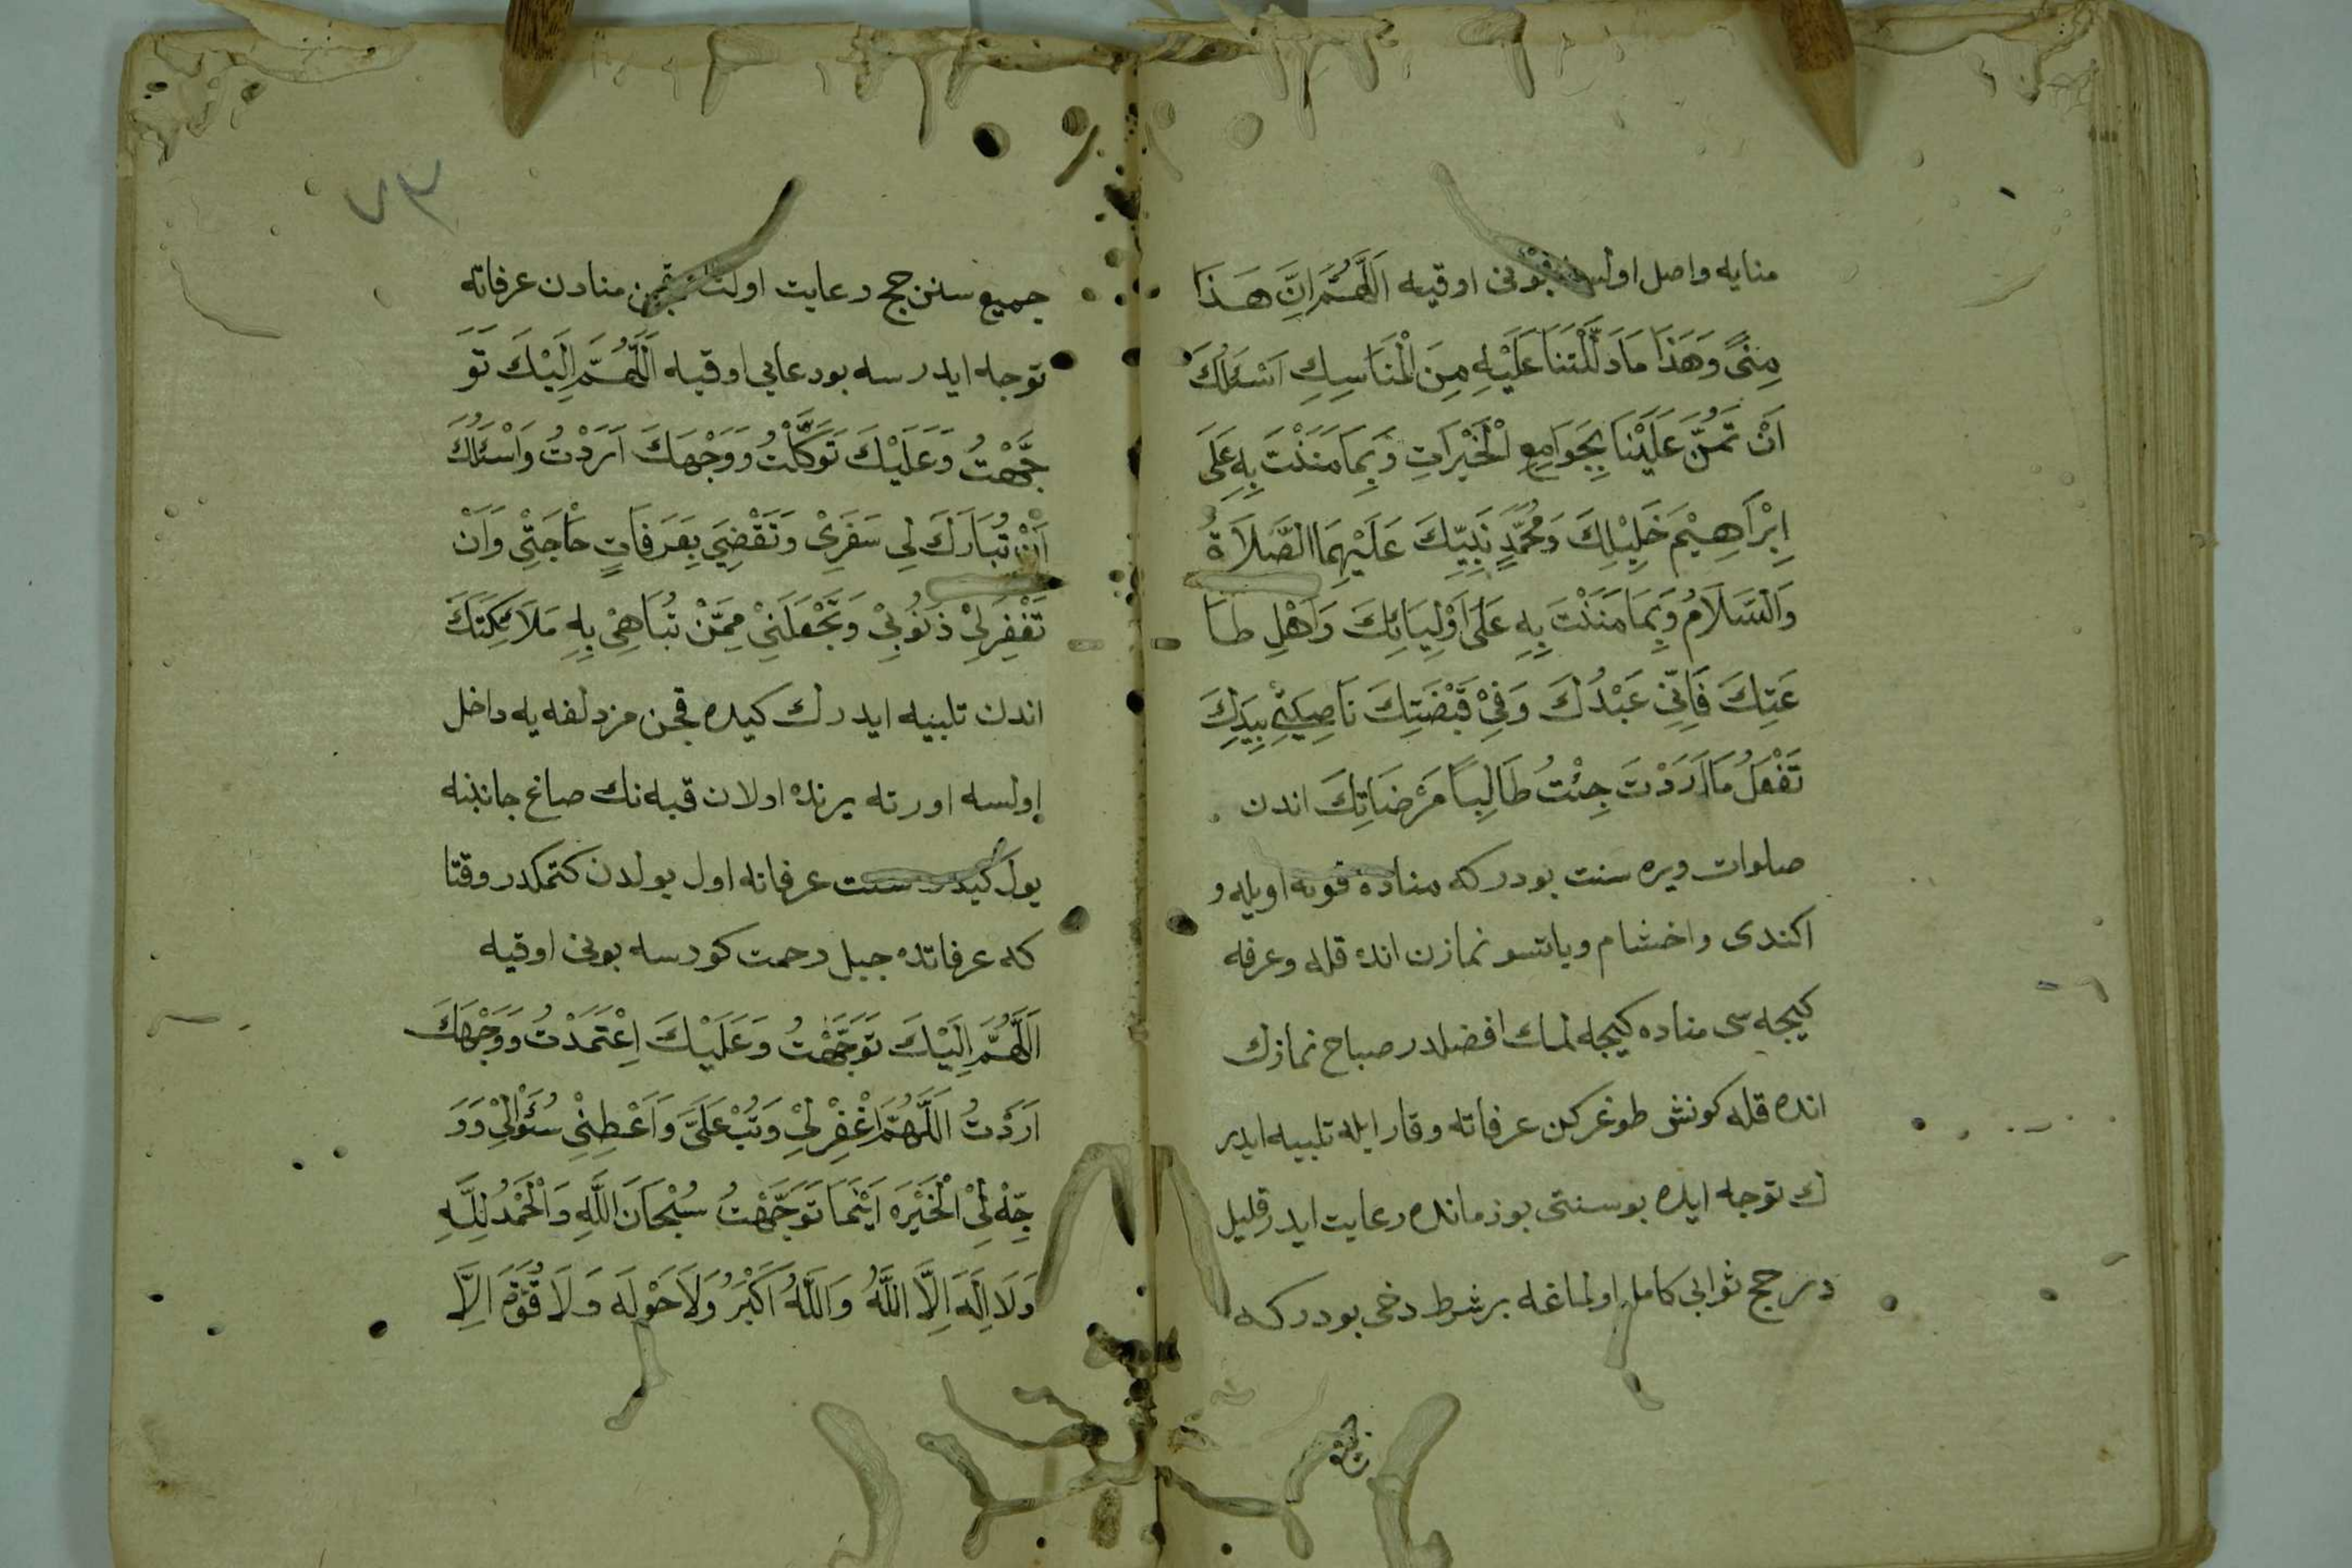 منايه واصل اولسه بونى اوقيه اَللّٰهُمَّ اِنَّ هَذَا
مِنًى وَهَذَا مَا دَلَّلْتَنَا عَلَيْهِ مِنَ الْمَنَاسِكِ اَسْئَلُكَ
اَنْ تَمُنَّ عَلَيْنَا بِجَوَامِعِ الْخَيْرَاتِ وَبِمَا مَنَنْتَ بِهِ عَلَى
اِبْرَاهِيْمَ خَلِيْلِكَ وَمُحَمَّدٍ نَبِيِّكَ عَلَيْهِمَا الصَّلَاةُ
وَالسَّلَامُ وَبِمَا مَنَنْتَ بِهِ عَلَى اَوْلِيَائِكَ وَاَهْلِ طَا
عَتِكَ فَاِنِّى عَبْدُكَ وَفِىْ قَبْضَتِكَ نَاصِيَتِى بِيَدِكَ
تَفْعَلُ مَا اَرَدْتَ جِئْتُ طَالِبًا مَرْضَاتِكَ اندن
صلوات ويره سنت بودركه مناده قونه اويله و
اكندى واخشام وياتسو نمازن انده قله وعرفه
كيجه سى مناده كيجه لمك افضلدر صباح نمازك
انده قله كونش طوغركن عرفاته وقار ايله تلبيه ايدر
ك توجه ايده بوسنتى بوزمانده رعايت ايدر قليل
در حج ثوابى كامل اولماغه برشرط دخى بودركه
جميع
٧٣
جميع سنن حج رعايت اولنه قچن منادن عرفاته
توجه ايدرسه بودعايى اوقيه اَللّٰهُمَّ اِلَيْكَ تَوَ
جَّهْتُ وَعَلَيْكَ تَوَكَّلْتُ وَوَجْهَكَ اَرَدْتُ وَاَسْئَلُكَ
اَنْ تُبَارَكَ لِى سَفَرِىْ وَتَقْضِىَ بِعَرَفَاتٍ حَاجَتِىْ وَاَنْ
تَغْفِرَلِىْ ذُنُوبِىْ وَتَجْعَلَنِىْ مِمَّنْ تُبَاهِىْ بِهِ مَلَائِكَتَكَ
اندن تلبيه ايدرك كيده قچن مزدلفه يه داخل
اولسه اورته يرنده اولان قبه نك صاغ جانبنه
يول كيدر سنت عرفاته اول يولدن كتمكدر وقتا
كه عرفاتده جبل رحمت كورسه بونى اوقيه
اَللّٰهُمَّ اِلَيْكَ تَوَجَّهْتُ وَعَلَيْكَ اِعْتَمَدْتُ وَوَجْهَكَ
اَرَدْتُ اَللّٰهُمَّ اغْفِرْلِىْ وَتُبْ عَلَىَّ وَاَعْطِنِىْ سُؤَلِىْ وَوَ
جِّهْ لِىْ الْخَيْرَ اَيْنَمَا تَوَجَّهْتُ سُبْحَانَ اللّٰهِ وَالْحَمْدُ لِلّٰهِ
وَلَا اِلَهَ اِلَّا اللّٰهُ وَاللّٰهُ اَكْبَرُ وَلَا حَوْلَ وَلَا قُوَّةَ اِلَّا